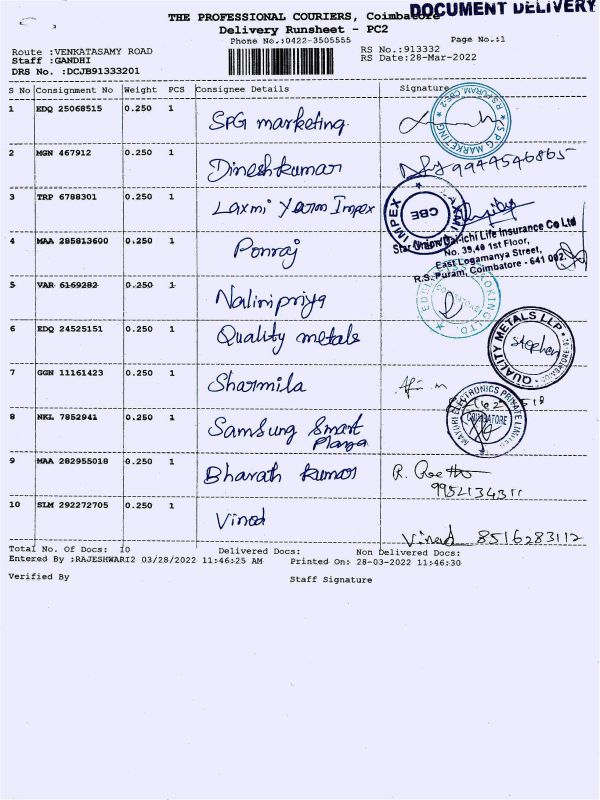 DOCUMENT DELIVERY
THE PROFESSIONAL COURIERS, Coimbatore
Delivery Runsheet - PC2
Phone No.:0422-3505555 Page No.:1
Route :VENKATASAMY ROAD RS No.:913332
Staff :GANDHI RS Date:28-Mar-2022
DRS No. :DCJB91333201
S No Consignment No Weight PCS Consignee Details Signature
1 EDQ 25068515 0.250 1 SPG marketing
R.S.PURAM, CBE-2. ★ SPG MARKETING ★
2 MGN 467912 0.250 1 Dineshkumar 9944546865
3 TRP 6788301 0.250 1 Laxmi Yarn Impex
LAXMI IMPEX CBE
Star Union Dai-ichi Life Insurance Co Ltd
No. 39,40 1st Floor,
East Logamanya Street,
R.S. Puram, Coimbatore - 641 002.
4 MAA 285813600 0.250 1 Ponraj
5 VAR 6169282 0.250 1 Nalinipriya
6 EDQ 24525151 0.250 1 Quality metals
QUALITY METALS LLP ★ Stephen
7 GGN 11161423 0.250 1 Sharmila
8 NKL 7852941 0.250 1 Samsung Smart
Plaza
MAYURI ELECTRONICS PRIVATE LIMITED COIMBATORE
9 MAA 282955018 0.250 1 Bharath kumar R.
9952134311
10 SLM 292272705 0.250 1 Vinod
Vinod 8516283112
Total No. Of Docs: 10 Delivered Docs: Non Delivered Docs:
Entered By :RAJESHWARI2 03/28/2022 11:46:25 AM Printed On: 28-03-2022 11:46:30
Verified By Staff Signature